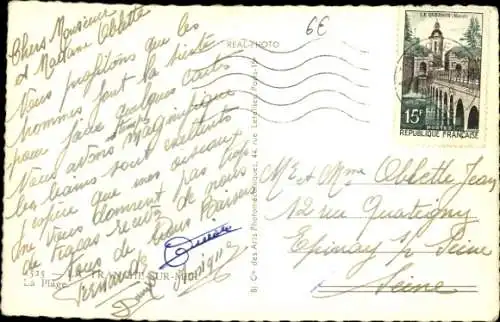 Chers Monsieur
et Madame Oblette
Nous profitons que les
hommes font la sieste
pour faire quelques cartes
Nous avons temps magnifique
les bains sont excellents
J'espère que mes oiseaux
ne vous donnent pas trop
de tracas recevez de nous
tous de bons Baisers
Fernande
6€
REAL-PHOTO
LE QUESNOY (Nord)
15F
REPUBLIQUE FRANÇAISE
Mr et Mme Oblette Jean
12 rue
Epinay s/ Seine
Seine
525
LA TRANCHE-SUR-MER
La Plage
Cie des Arts Photomécaniques, 44, rue Letellier, Paris-15e